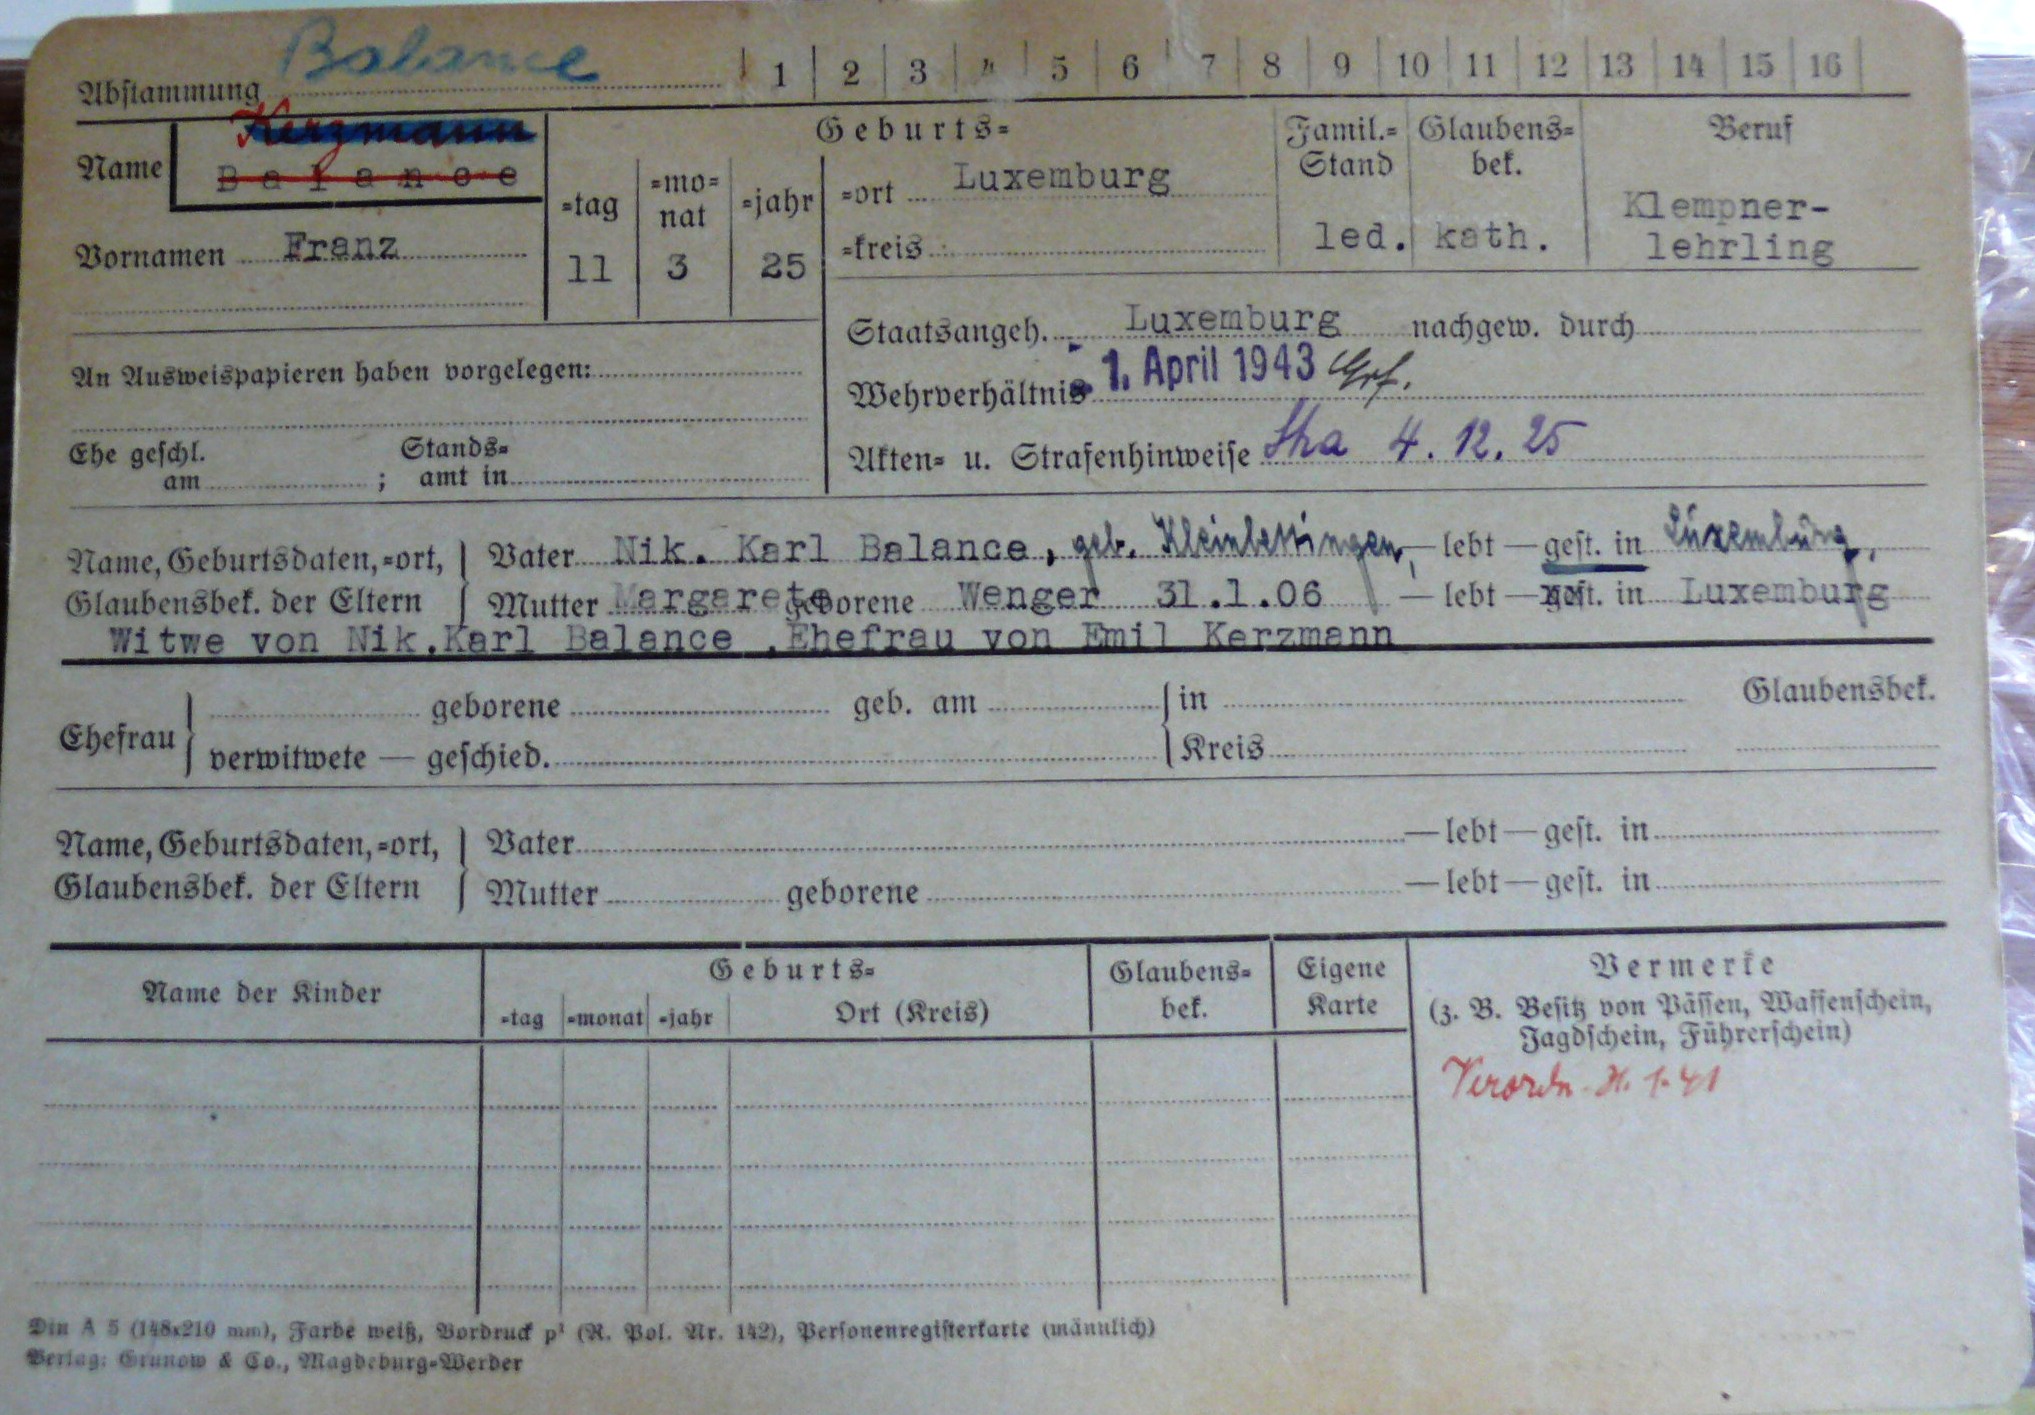 Abstammung Balance 1 2 3 4 5 6 7 8 9 10 11 12 13 14 15 16
Name Kerzmann
Balance
Geburts=
=tag =mo=nat =jahr =ort Luxemburg
=kreis
Famil.=Stand Glaubens=bek. Beruf
Vornamen Franz 11 3 25 led. kath. Klempner-
lehrling
Staatsangeh. Luxemburg nachgew. durch
An Ausweispapieren haben vorgelegen:
Wehrverhältnis 1. April 1943
Akten= u. Strafenhinweise 4. 12. 25
Ehe geschl. am ; Stands=amt in
Name, Geburtsdaten, =ort, Vater Nik. Karl Balance, geb. Kleinbettingen, — lebt — gest. in Luxemburg,
Glaubensbek. der Eltern Mutter Margarete geborene Wenger 31.1.06 — lebt — gest. in Luxemburg
Witwe von Nik.Karl Balance ,Ehefrau von Emil Kerzmann
Ehefrau geborene geb. am in Glaubensbek.
verwitwete — geschied. Kreis
Name, Geburtsdaten, =ort, Vater — lebt — gest. in
Glaubensbek. der Eltern Mutter geborene — lebt — gest. in
Name der Kinder Geburts= Glaubens=bek. Eigene Karte Vermerke
=tag =monat =jahr Ort (Kreis)
(z. B. Besitz von Pässen, Waffenschein,
Jagdschein, Führerschein)
1. 41
Din A 5 (148x210 mm), Farbe weiß, Vordruck p¹ (R. Pol. Nr. 142), Personenregisterkarte (männlich)
Verlag: Grunow & Co., Magdeburg=Werder